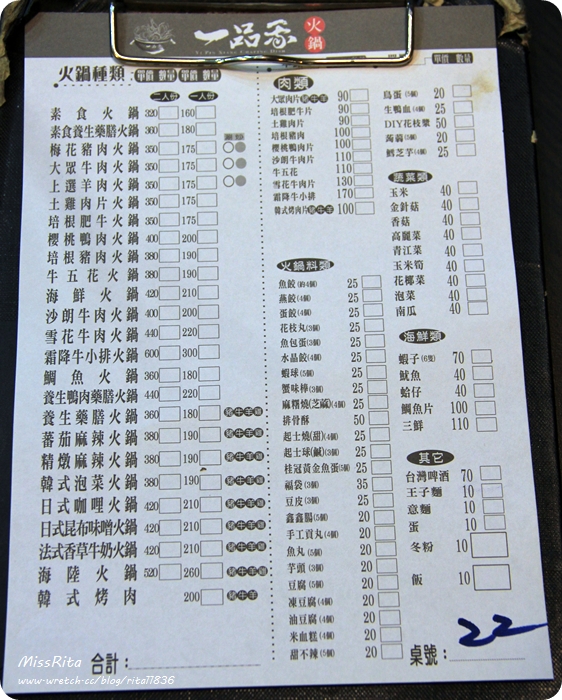 一品香 火鍋
火鍋種類: 單價 數量 單價 數量
二人份 一人份
素食火鍋 320 160
素食養生藥膳火鍋 360 180
梅花豬肉火鍋 350 175
大眾牛肉火鍋 350 175
上選羊肉火鍋 350 175
土雞肉片火鍋 350 175
培根肥牛火鍋 350 175
櫻桃鴨肉火鍋 400 200
培根豬肉火鍋 380 190
牛五花火鍋 380 190
海鮮火鍋 420 210
沙朗牛肉火鍋 400 200
雪花牛肉火鍋 440 220
霜降牛小排火鍋 600 300
鯛魚火鍋 360 180
養生鴨肉藥膳火鍋 440 220
養生藥膳火鍋 360 180 豬牛羊雞
蕃茄麻辣火鍋 380 190 豬牛羊雞
精燉麻辣火鍋 380 190 豬牛羊雞
韓式泡菜火鍋 380 190 豬牛羊雞
日式咖哩火鍋 420 210 豬牛羊雞
日式昆布味噌火鍋 420 210 豬牛羊雞
法式香草牛奶火鍋 420 210 豬牛羊雞
海陸火鍋 520 260 豬牛羊雞
韓式烤肉 200 豬牛羊
合計:
肉類
大眾肉片 豬牛羊 90
培根肥牛片 90
土雞肉片 90
培根豬肉 100
櫻桃鴨肉片 100
沙朗牛肉片 110
牛五花 110
雪花牛肉片 130
霜降牛小排 170
韓式烤肉片 豬牛羊 100
火鍋料類
魚餃(約4個) 25
燕餃(4個) 25
蛋餃(4個) 25
花枝丸(3個) 25
魚包蛋(3個) 25
水晶餃(4個) 25
蝦球(5個) 25
蟹味棒(3個) 25
麻糬燒(芝麻)(4個) 25
排骨酥 50
起士燒(甜)(4個) 25
起士球(鹹)(3個) 25
桂冠黃金魚蛋(5個) 25
福袋(3個) 35
豆皮(3個) 25
鑫鑫腸(5個) 20
手工貢丸(4個) 20
魚丸(5個) 20
芋頭(3個) 20
豆腐(5個) 20
凍豆腐(4個) 20
油豆腐(4個) 20
米血糕(4個) 20
甜不辣(5個) 20
單價 數量
鳥蛋(5個) 20
生鴨血(4個) 25
DIY花枝漿 50
蒟蒻(5個) 20
鱈芝芋(4個) 25
蔬菜類
玉米 40
金針菇 40
香菇 40
高麗菜 40
青江菜 40
玉米筍 40
花椰菜 40
泡菜 40
南瓜 40
海鮮類
蝦子(6隻) 70
魷魚 40
蛤仔 40
鯛魚片 100
三鮮 110
其它
台灣啤酒 70
王子麵 10
意麵 10
蛋 10
冬粉 10
飯 10
桌號: 22
MissRita
www.wretch.cc/blog/rita71836